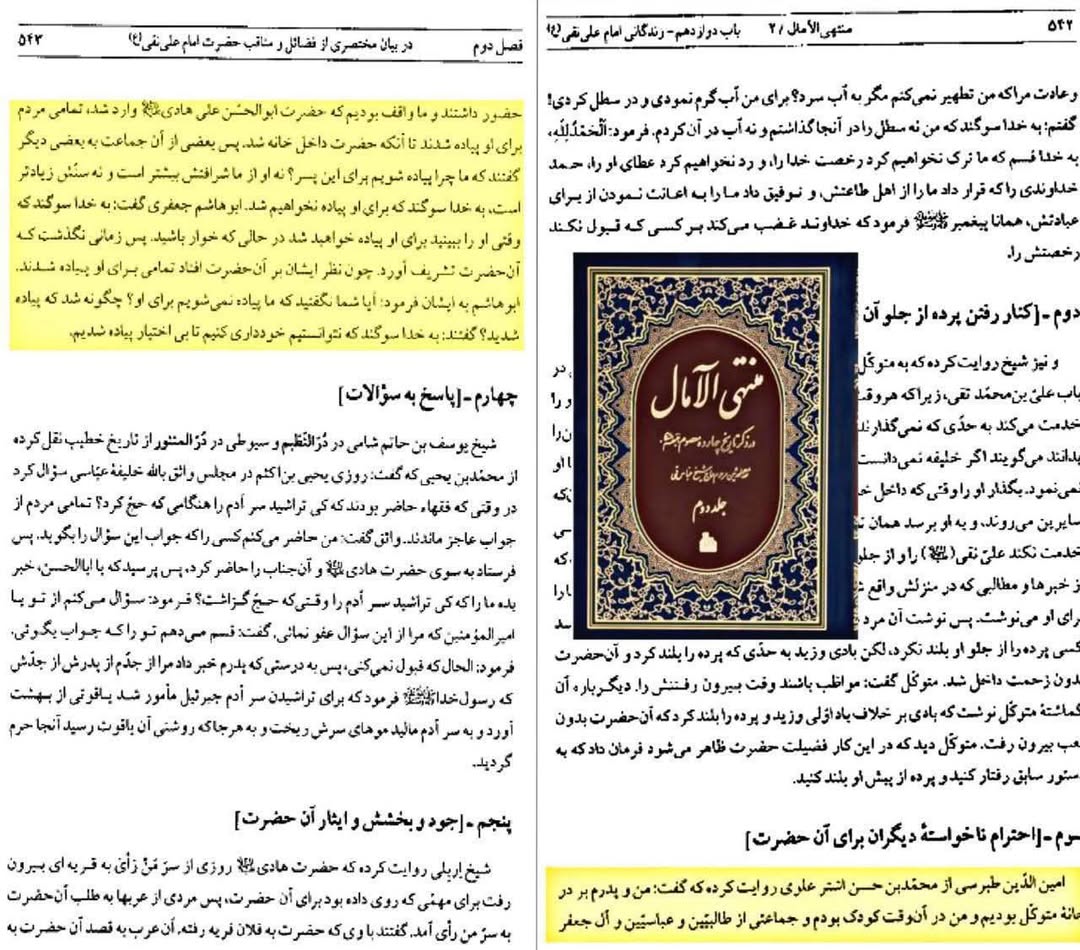 ۵۴۲ منتهی‌الآمال / ۲ باب دوازدهم - زندگانی امام علی‌نقی(ع)
و عادت مرا که من تطهیر نمی‌کنم مگر به آب سرد؟ برای من آب گرم نمودی و در سطل کردی!
گفتم: به خدا سوگند که من نه سطل را در آنجا گذاشتم و نه آب در آن کردم. فرمود: اَلْحَمْدُلِلّٰهِ،
به خدا قسم که ما ترک نخواهیم کرد رخصت خدا را، و رد نخواهیم کرد عطای او را، حمد
خداوندی را که قرار داد ما را از اهل طاعتش، و توفیق داد ما را به اعانت نمودن از برای
عبادتش، همانا پیغمبر ﷺ فرمود که خداوند غضب می‌کند بر کسی که قبول نکند
رخصتش را.
دوم - [کنار رفتن پرده از جلو آن
و نیز شیخ روایت کرده که به متوکّل
باب علیّ بن محمّد تقی، زیرا که هر وقت
خدمت می‌کند به حدّی که نمی‌گذارند
بدانند می‌گویند اگر خلیفه نمی‌دانست
نمی‌نمود. بگذار او را وقتی که داخل
سایرین می‌روند، و به او برسد همان
خدمت نکند علیّ نقی(علیه السلام) را و از جلو
از خبرها و مطالبی که در منزلش واقع
برای او می‌نوشت. پس نوشت آن مرد
کسی پرده را از جلو او بلند نکرد، لکن بادی وزید به حدّی که پرده را بلند کرد و آن‌حضرت
بدون زحمت داخل شد. متوکّل گفت: مواظب باشند وقت بیرون رفتنش را. دیگرباره آن
گماشتهٔ متوکّل نوشت که بادی بر خلاف باد اوّلی وزید و پرده را بلند کرد که آن‌حضرت بدون
تعب بیرون رفت. متوکّل دید که در این کار فضیلت حضرت ظاهر می‌شود فرمان داد که به
دستور سابق رفتار کنید و پرده از پیش او بلند کنید.
سوم - [احترام ناخواستهٔ دیگران برای آن حضرت]
امین الدّین طبرسی از محمّدبن حسن اشتر علوی روایت کرده که گفت: من و پدرم بر در
خانهٔ متوکّل بودیم و من در آن‌وقت کودک بودم و جماعتی از طالبیّین و عباسیّین و آل جعفر
منتهی الآمال
در ذکر تاریخ چهارده معصوم
جلد دوم
فصل دوم در بیان مختصری از فضائل و مناقب حضرت امام علی‌نقی(ع) ۵۴۳
حضور داشتند و ما واقف بودیم که حضرت ابوالحسن علی هادی علیه السلام وارد شد، تمامی مردم
برای او پیاده شدند تا آنکه حضرت داخل خانه شد. پس بعضی از آن جماعت به بعضی دیگر
گفتند که ما چرا پیاده شویم برای این پسر؟ نه او از ما شرافتش بیشتر است و نه سنّش زیادتر
است، به خدا سوگند که برای او پیاده نخواهیم شد. ابوهاشم جعفری گفت: به خدا سوگند که
وقتی او را ببینید برای او پیاده خواهید شد در حالی که خوار باشید. پس زمانی نگذشت که
آن‌حضرت تشریف آورد. چون نظر ایشان بر آن‌حضرت افتاد تمامی برای او پیاده شدند.
ابوهاشم به ایشان فرمود: آیا شما نگفتید که ما پیاده نمی‌شویم برای او؟ چگونه شد که پیاده
شدید؟ گفتند: به خدا سوگند که نتوانستیم خودداری کنیم تا بی اختیار پیاده شدیم.
چهارم - [پاسخ به سؤالات]
شیخ یوسف بن حاتم شامی در دُرّالنَّظیم و سیوطی در دُرّ المنثور از تاریخ خطیب نقل کرده
از محمّدبن یحیی که گفت: روزی یحیی بن اکثم در مجلس واثق بالله خلیفهٔ عبّاسی سؤال کرد
در وقتی که فقهاء حاضر بودند که کی تراشید سر آدم را هنگامی که حجّ کرد؟ تمامی مردم از
جواب عاجز ماندند. واثق گفت: من حاضر می‌کنم کسی را که جواب این سؤال را بگوید. پس
فرستاد به سوی حضرت هادی علیه السلام و آن‌جناب را حاضر کرد، پس پرسید که یا اباالحسن، خبر
بده ما را که کی تراشید سر آدم را وقتی که حجّ گزاشت؟ فرمود: سؤال می‌کنم از تو یا
امیرالمؤمنین که مرا از این سؤال عفو نمائی. گفت: قسم می‌دهم تو را که جواب بگوئی.
فرمود: الحال که قبول نمی‌کنی، پس به درستی که پدرم خبر داد مرا از جدّم از پدرش از جدّش
که رسول‌خدا ﷺ فرمود که برای تراشیدن سر آدم جبرئیل مأمور شد یاقوتی از بهشت
آورد و به سر آدم مالید موهای سرش ریخت و به هر جا که روشنی آن یاقوت رسید آنجا حرم
گردید.
پنجم - [جود و بخشش و ایثار آن حضرت]
شیخ اربلی روایت کرده که حضرت هادی علیه السلام روزی از سرّ مَنْ رَأیٰ به قریه ای بیرون
رفت برای مهمّی که روی داده بود برای آن حضرت، پس مردی از عربها به طلب آن‌حضرت
به سرّ من رأی آمد. گفتند با وی که حضرت به فلان قریه رفته. آن عرب به قصد آن حضرت به